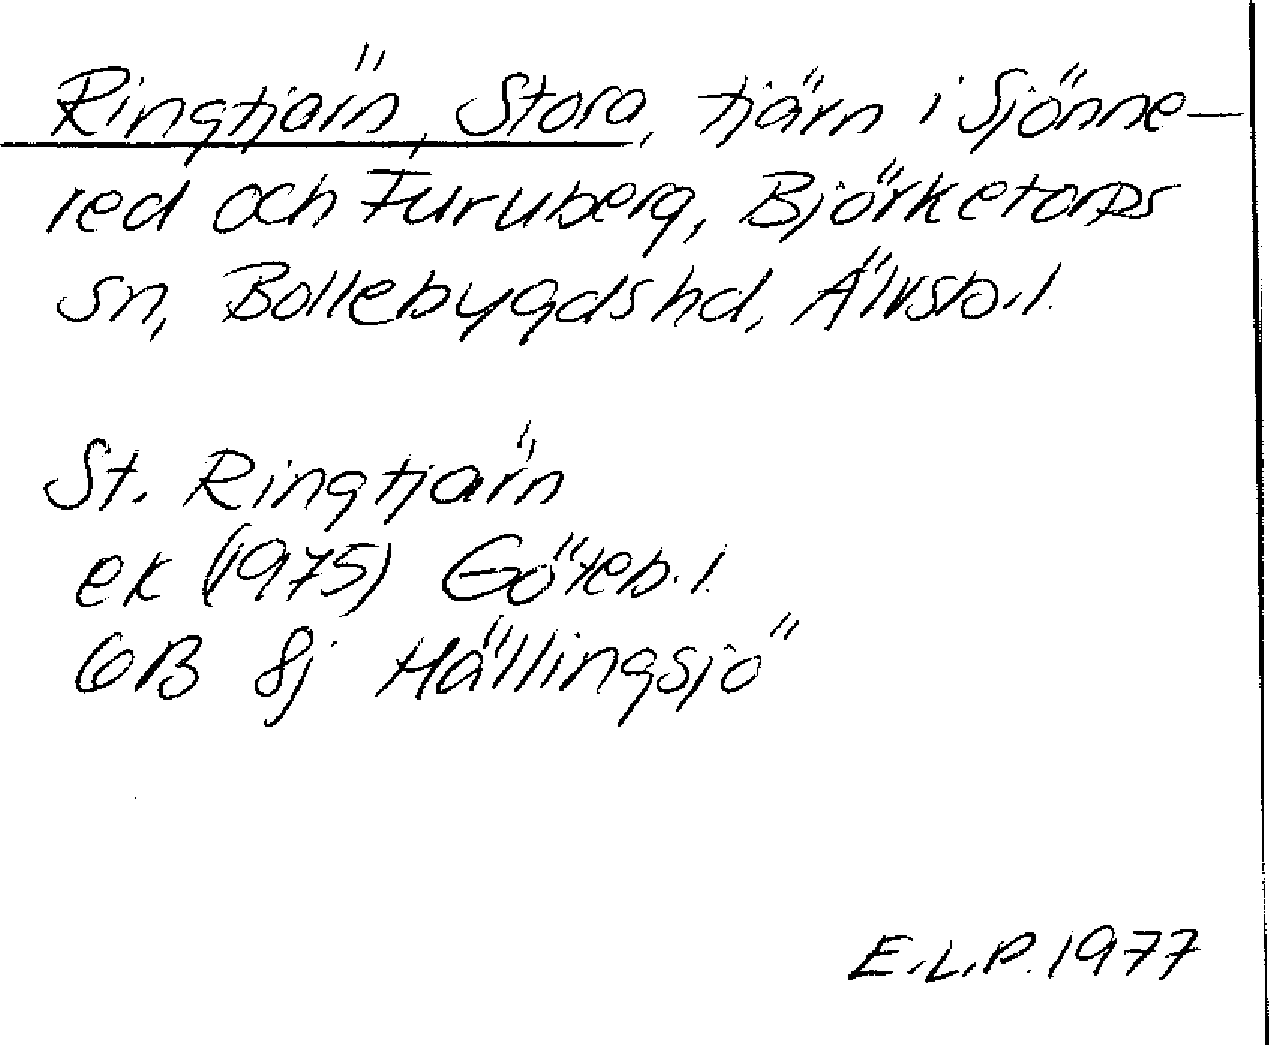 Ringtjärn, Stora, tjärn i Sjönne-
red och Furuberg, Björketorps
sn, Bollebygds hd, Älvsb. l.
St. Ringtjärn
ek (1975) Göteb. l.
6B 8j Hällingsjö
E.L.P. 1977